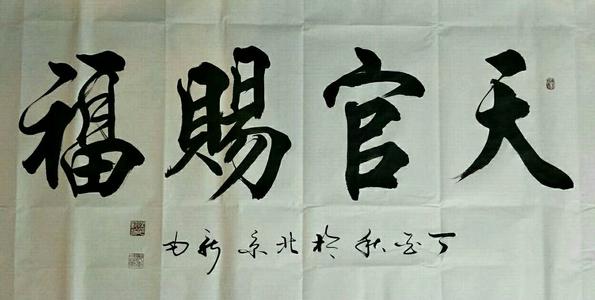 天官賜福
丁酉秋於北京新